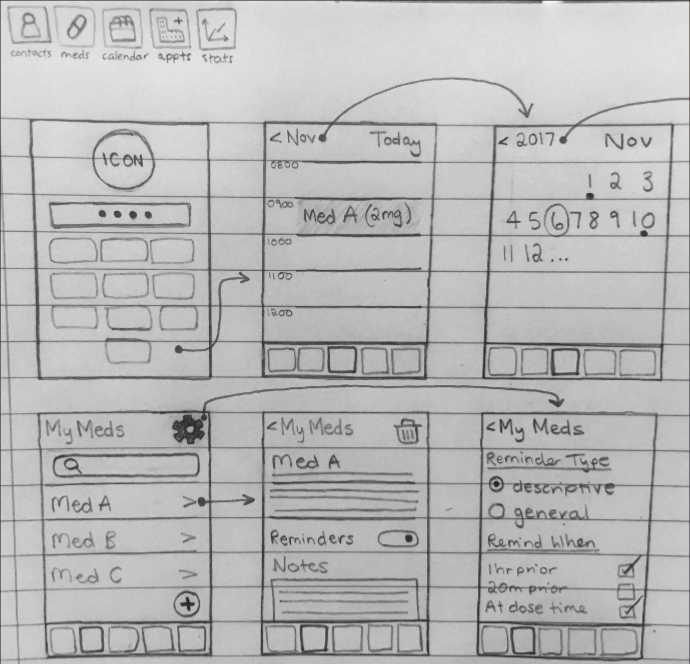 contacts meds calendar appts stats
ICON
< Nov Today
0800
0900
Med A (2mg)
1000
1100
1200
< 2017 Nov
1 2 3
4 5 6 7 8 9 10
11 12 ...
My Meds
Med A >
Med B >
Med C >
+
< My Meds
Med A
Reminders
Notes
< My Meds
Reminder Type
descriptive
general
Remind When
1hr prior
20m prior
At dose time